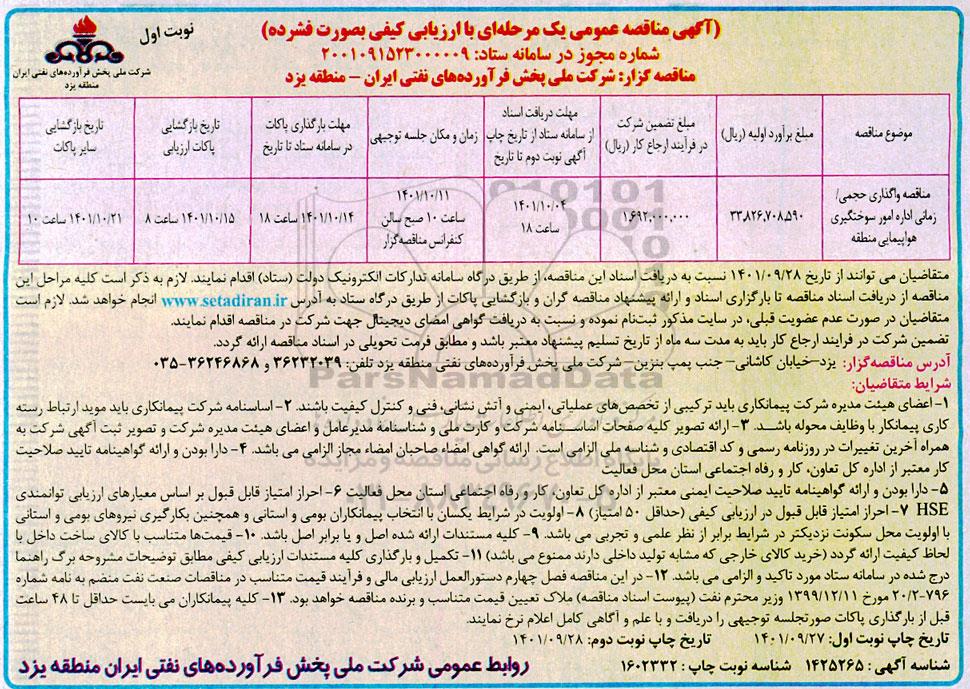 (آگهی مناقصه عمومی یک مرحله‌ای با ارزیابی کیفی بصورت فشرده)
نوبت اول
شماره مجوز در سامانه ستاد: ۲۰۰۱۰۹۱۵۲۳۰۰۰۰۰۹
مناقصه گزار: شرکت ملی پخش فرآورده‌های نفتی ایران – منطقه یزد
شرکت ملی پخش فرآورده‌های نفتی ایران
منطقه یزد
موضوع مناقصه
مبلغ برآورد اولیه (ریال)
مبلغ تضمین شرکت
در فرآیند ارجاع کار (ریال)
مهلت دریافت اسناد
از سامانه ستاد از تاریخ چاپ
آگهی نوبت دوم تا تاریخ
زمان و مکان جلسه توجیهی
مهلت بارگذاری پاکات
در سامانه ستاد تا تاریخ
تاریخ بازگشایی
پاکات ارزیابی
تاریخ بازگشایی
سایر پاکات
مناقصه واگذاری حجمی/
زمانی اداره امور سوختگیری
هواپیمایی منطقه
۳۳,۸۲۶,۷۰۸,۵۹۰
۱,۶۹۲,۰۰۰,۰۰۰
۱۴۰۱/۱۰/۰۴
ساعت ۱۸
۱۴۰۱/۱۰/۱۱
ساعت ۱۰ صبح سالن
کنفرانس مناقصه‌گزار
۱۴۰۱/۱۰/۱۴ ساعت ۱۸
۱۴۰۱/۱۰/۱۵ ساعت ۸
۱۴۰۱/۱۰/۲۱ ساعت ۱۰
متقاضیان می توانند از تاریخ ۱۴۰۱/۰۹/۲۸ نسبت به دریافت اسناد این مناقصه، از طریق درگاه سامانه تدارکات الکترونیک دولت (ستاد) اقدام نمایند. لازم به ذکر است کلیه مراحل این
مناقصه از دریافت اسناد مناقصه تا بارگزاری اسناد و ارائه پیشنهاد مناقصه گران و بازگشایی پاکات از طریق درگاه ستاد به آدرس www.setadiran.ir انجام خواهد شد. لازم است
متقاضیان در صورت عدم عضویت قبلی، در سایت مذکور ثبت‌نام نموده و نسبت به دریافت گواهی امضای دیجیتال جهت شرکت در مناقصه اقدام نمایند.
تضمین شرکت در فرایند ارجاع کار باید به مدت سه ماه از تاریخ تسلیم پیشنهاد معتبر باشد و مطابق فرمت تحویلی در اسناد مناقصه ارائه گردد.
آدرس مناقصه‌گزار: یزد–خیابان کاشانی– جنب پمپ بنزین– شرکت ملی پخش فرآورده‌های نفتی منطقه یزد تلفن: ۳۶۲۳۲۰۳۹ و ۳۶۲۴۶۸۶۸–۰۳۵
شرایط متقاضیان:
۱-اعضای هیئت مدیره شرکت پیمانکاری باید ترکیبی از تخصص‌های عملیاتی، ایمنی و آتش نشانی، فنی و کنترل کیفیت باشند. ۲- اساسنامه شرکت پیمانکاری باید موید ارتباط رسته
کاری پیمانکار با وظایف محوله باشد. ۳-ارائه تصویر کلیه صفحات اساسنامه شرکت و کارت ملی و شناسنامه مدیرعامل و اعضای هیئت مدیره شرکت و تصویر ثبت آگهی شرکت به
همراه آخرین تغییرات در روزنامه رسمی و کد اقتصادی و شناسه ملی الزامی است. ارائه گواهی امضاء صاحبان امضاء مجاز الزامی می باشد. ۴- دارا بودن و ارائه گواهینامه تایید صلاحیت
کار معتبر از اداره کل تعاون، کار و رفاه اجتماعی استان محل فعالیت
۵- دارا بودن و ارائه گواهینامه تایید صلاحیت ایمنی معتبر از اداره کل تعاون، کار و رفاه اجتماعی استان محل فعالیت ۶- احراز امتیاز قابل قبول بر اساس معیارهای ارزیابی توانمندی
HSE ۷- احراز امتیاز قابل قبول در ارزیابی کیفی (حداقل ۵۰ امتیاز) ۸- اولویت در شرایط یکسان با انتخاب پیمانکاران بومی و استانی و همچنین بکارگیری نیروهای بومی و استانی
با اولویت محل سکونت نزدیکتر در شرایط برابر از نظر علمی و تجربی می باشد. ۹- کلیه مستندات ارائه شده اصل و یا برابر اصل باشد. ۱۰- قیمت‌ها متناسب با کالای ساخت داخل با
لحاظ کیفیت ارائه گردد (خرید کالای خارجی که مشابه تولید داخلی دارند ممنوع می باشد) ۱۱- تکمیل و بارگذاری کلیه مستندات ارزیابی کیفی مطابق توضیحات مشروحه برگ راهنما
درج شده در سامانه ستاد مورد تاکید و الزامی می باشد. ۱۲- در این مناقصه فصل چهارم دستورالعمل ارزیابی مالی و فرآیند قیمت متناسب در مناقصات صنعت نفت منضم به نامه شماره
۲۰/۲-۷۹۶ مورخ ۱۳۹۹/۱۲/۱۱ وزیر محترم نفت (پیوست اسناد مناقصه) ملاک تعیین قیمت متناسب و برنده مناقصه خواهد بود. ۱۳- کلیه پیمانکاران می بایست حداقل تا ۴۸ ساعت
قبل از بارگذاری پاکات صورتجلسه توجیهی را دریافت و با علم و آگاهی کامل اعلام نرخ نمایند.
تاریخ چاپ نوبت اول: ۱۴۰۱/۰۹/۲۷ تاریخ چاپ نوبت دوم: ۱۴۰۱/۰۹/۲۸
شناسه آگهی : ۱۴۲۵۲۶۵ شناسه نوبت چاپ : ۱۶۰۲۳۳۲
روابط عمومی شرکت ملی پخش فرآورده‌های نفتی ایران منطقه یزد
ParsNamadData